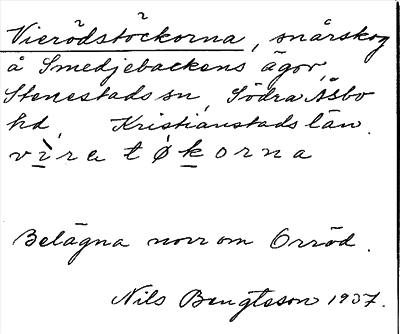 Vierödstöckorna, snårskog
å Smedjebackens ägor,
Stenestads sn, Södra Åsbo
hd, Kristianstads län.
vìratøkorna
Belägna norr om Orröd.
Nils Bengtsson 1937.